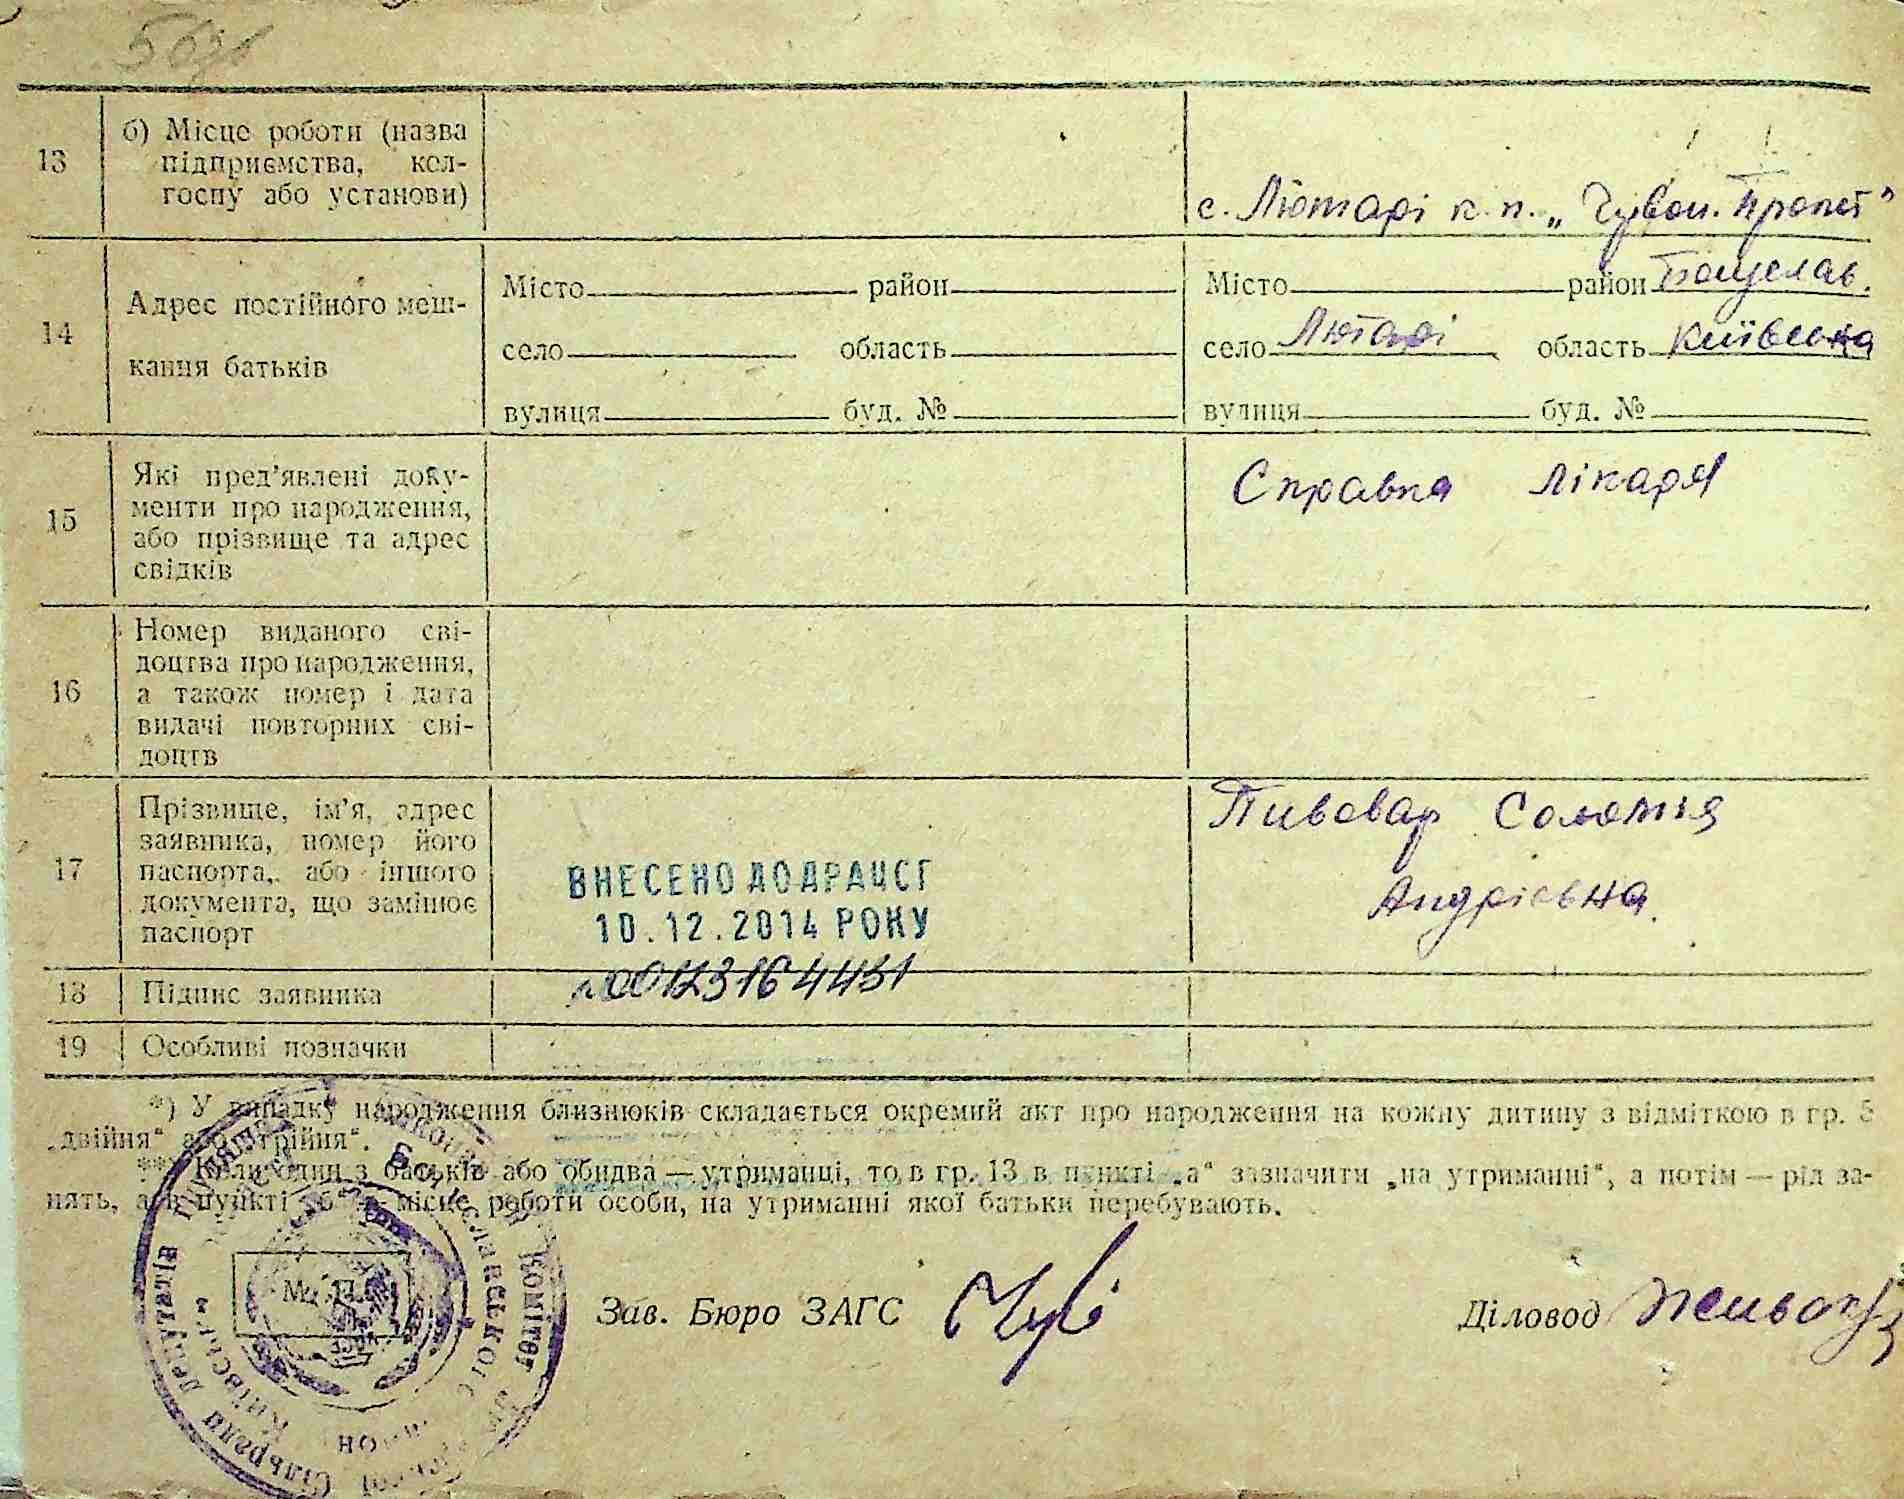 13
б) Місце роботи (назва
підприємства, кол-
госпу або установи)
с. Лютарі к. п. „Червон. Прапот"
14
Адрес постійного меш-
кання батьків
Місто район Місто район Богуслав.
село область село Лютарі область Київська
вулиця буд. № вулиця буд. №
15
Які пред’явлені доку-
менти про народження,
або прізвище та адрес
свідків
Справка лікаря
16
Номер виданого сві-
доцтва про народження,
а також номер і дата
видачі повторних сві-
доцтв
17
Прізвище, ім’я, адрес
заявника, номер його
паспорта, або іншого
документа, що замінює
паспорт
Пивовар Соломія
Андріївна.
ВНЕСЕНО ДО ДРАЦСГ
10.12.2014 РОКУ
№00123164431
18 Підпис заявника
19 Особливі позначки
*) У випадку народження близнюків складається окремий акт про народження на кожну дитину з відміткою в гр. 5
„двійня“ або „трійня“.
**) Коли один з батьків або обидва — утриманці, то в гр. 13 в пункті „а“ зазначити „на утриманні“, а потім — рід за-
нять, а в пункті „б“ — місце роботи особи, на утриманні якої батьки перебувають.
М. П.
Зав. Бюро ЗАГС
Діловод